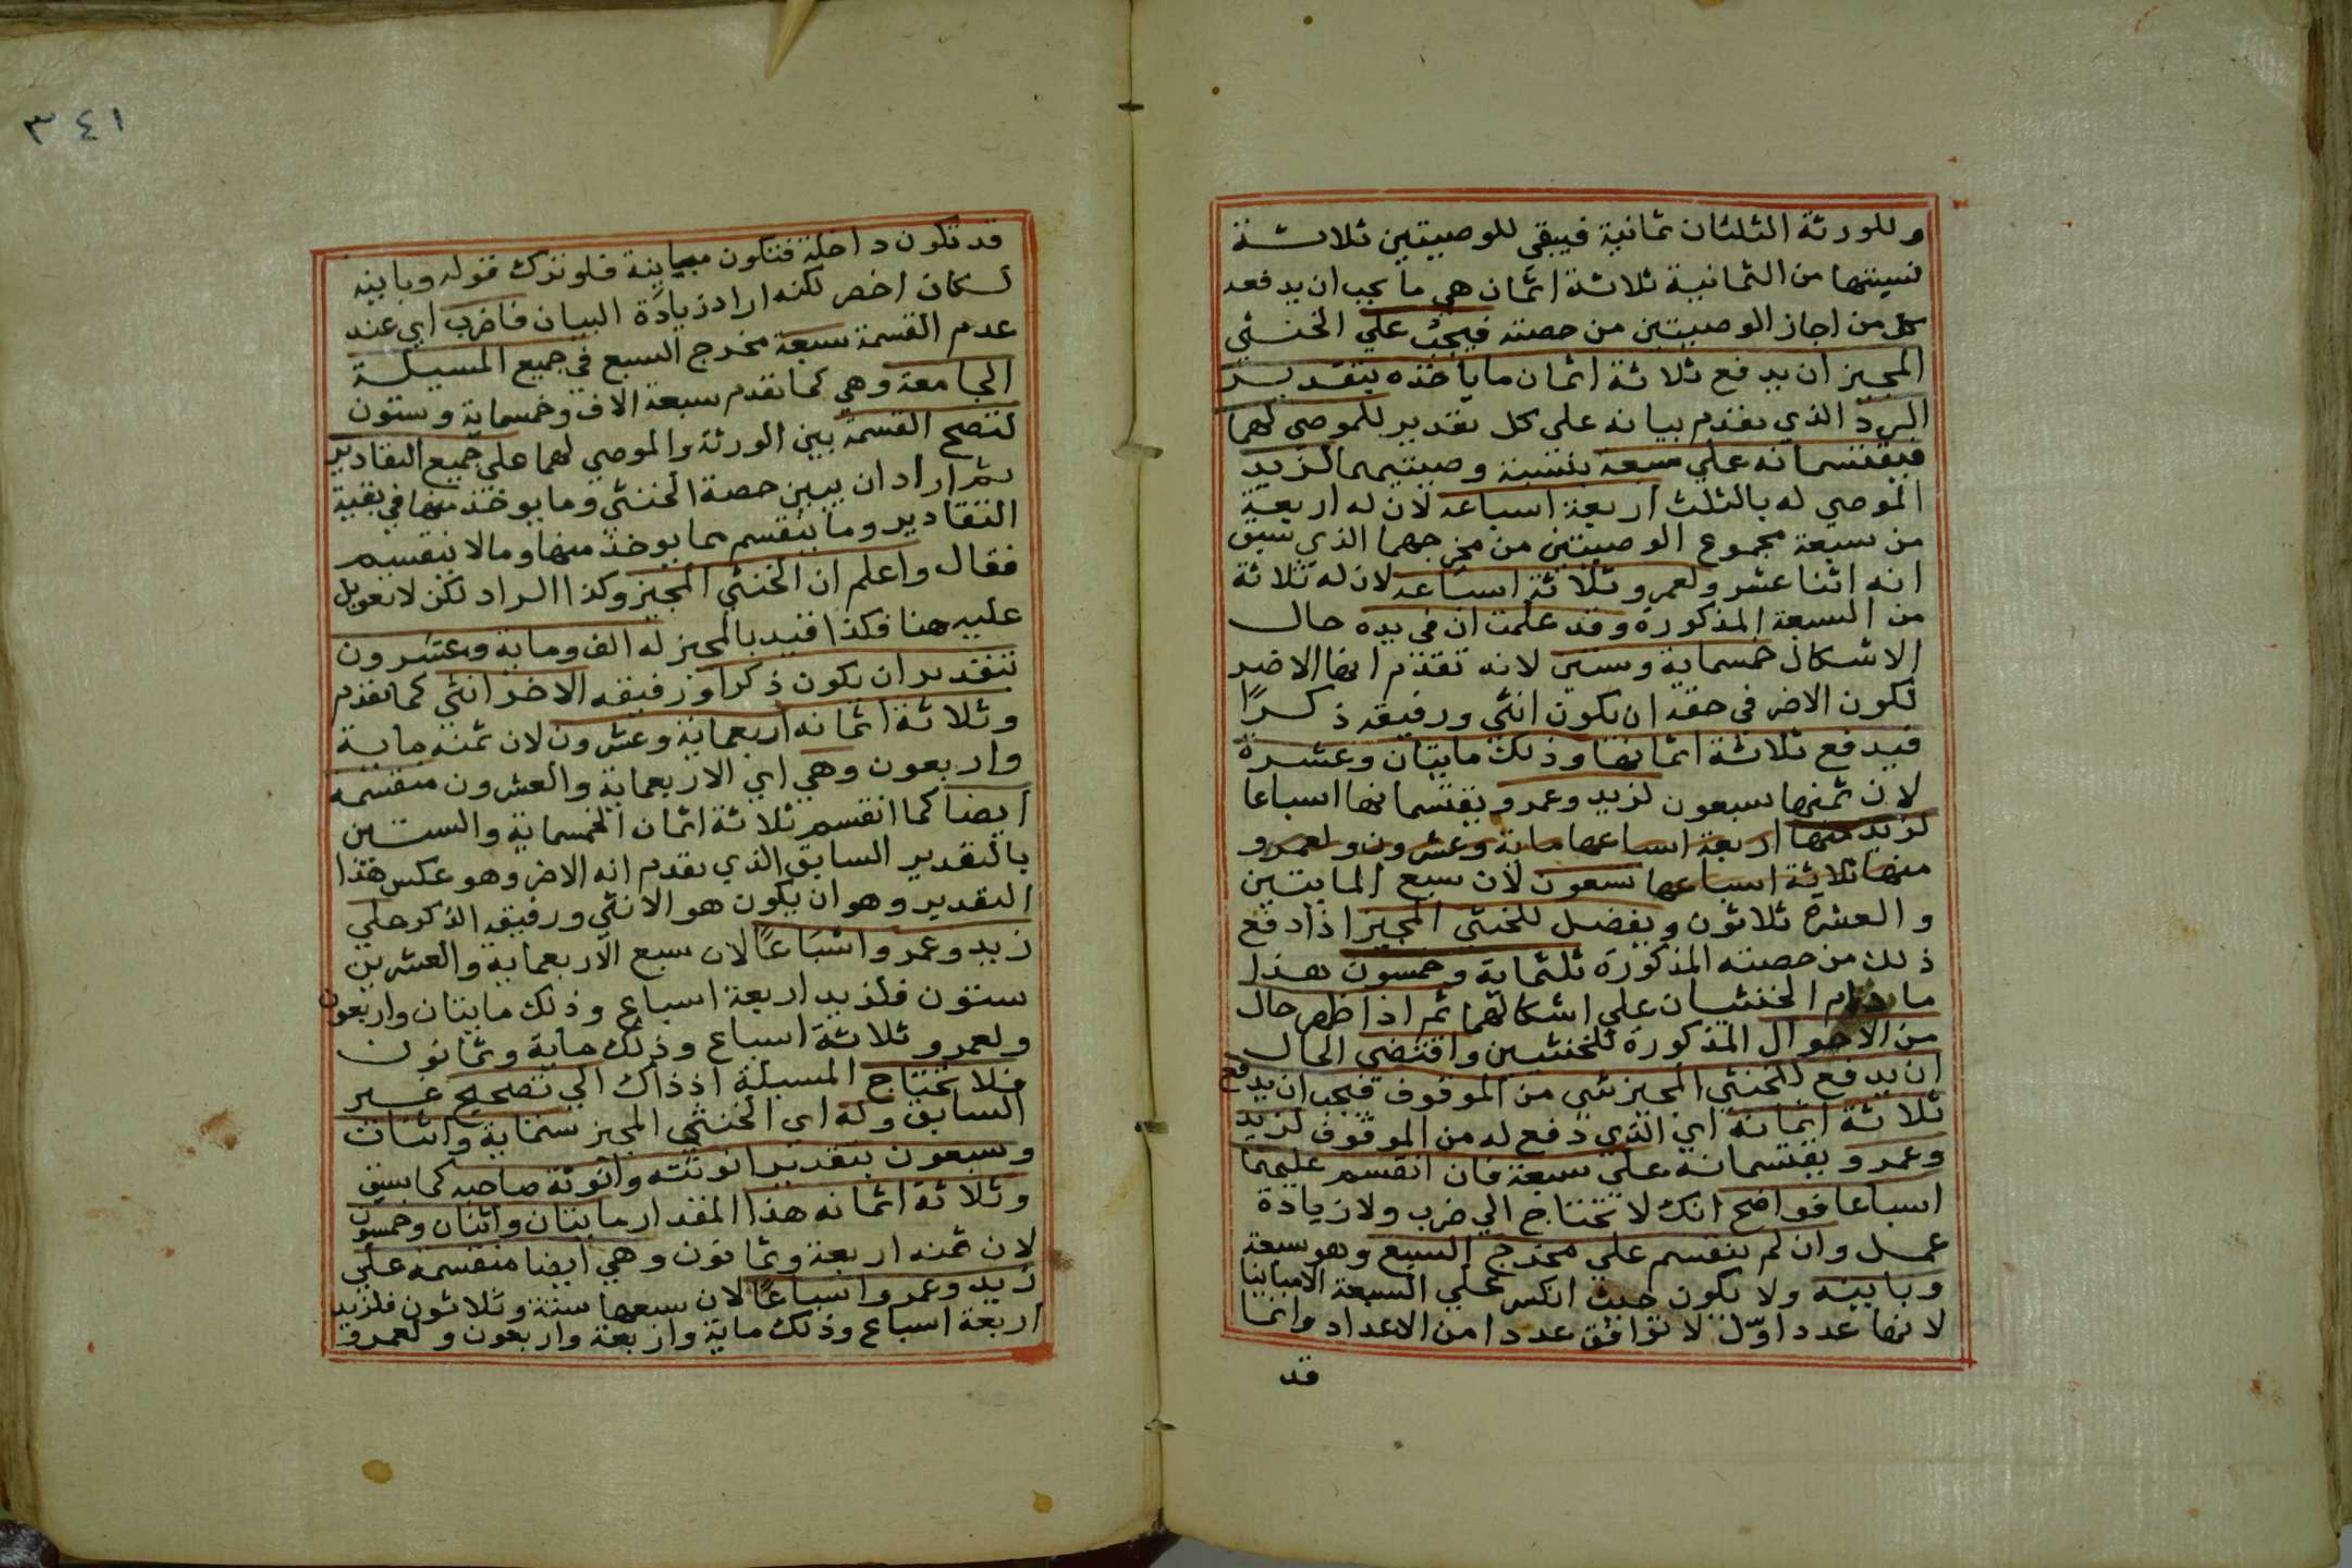 وللورثة الثلثان ثمانية فيبقي للوصيتين ثلاثة
نسبتها من الثمانية ثلاثة اثمان هي ما يجب ان يدفعه
كل من اجاز الوصيتين من حصته فيجب علي الخنثي
المجيز ان يدفع ثلاثة اثمان ما ياخذه بتقدير
الرد الذي تقدم بيانه علي كل تقدير للموصي لهما
فيقتسمانه علي سبعة بنسبة وصيتيهما لزيد
الموصي له بالثلث اربعة اسباعه لان له اربعة
من سبعة مجموع الوصيتين من مخرجهما الذي سبق
انه اثنا عشر ولعمرو ثلاثة اسباعه لان له ثلاثة
من السبعة المذكورة وقد علمت ان في يده حال
الاشكال خمسماية وستين لانه تقدم انها الاضر
لكون الاضر في حقه ان يكون انثي ورفيقه ذكرًا
فيدفع ثلاثة اثمانها وذلك مايتان وعشرة
لان ثمنها سبعون لزيد وعمرو يقتسمانها اسباعا
لزيد منها اربعة اسباعها ماية وعشرون ولعمرو
منها ثلاثة اسباعها تسعون لان سبع المايتين
والعشرة ثلاثون ويفضل للخنثي المجيز اذا دفع
ذلك من حصته المذكورة ثلثماية وخمسون هذا
ما دام الخنثيان علي اشكالهما ثم اذا ظهر حال
من الاحوال المذكورة للخنثيين واقتضي الحال
ان يدفع للخنثي المجيز شي من الموقوف فيجب ان يدفع
ثلاثة اثمانه اي الذي دفع له من الموقوف لزيد
وعمرو يقتسمانه علي سبعة فان انقسم عليهما
اسباعا فواضح انك لا تحتاج الي ضرب ولا زيادة
عمل وان لم ينقسم علي مخرج السبع وهو سبعة
وباينه ولا يكون حيث انكسر علي السبعة الا مباينا
لانها عدد اوّل لا توافق عددا من الاعداد وانما
قد
٣٤١
قد تكون داخلة فتكون مباينة فلو ترك قوله وباينه
لكان اخصر لكنه اراد زيادة البيان فاضرب اي عند
عدم القسمة سبعة مخرج السبع في جميع المسيلة
الجامعة وهي كما تقدم سبعة الاف وخمسماية وستون
لتصح القسمة بين الورثة والموصي لهما علي جميع التقادير
ثم اراد ان يبين حصة الخنثي وما يوخذ منها في بقية
التقادير وما ينقسم مما يوخذ منها وما لا ينقسم
فقال واعلم ان الخنثي المجيز وكذا الراد لكن لا تعويل
عليه هنا فكذا قيد بالمجيز له الف وماية وعشرون
بتقدير ان يكون ذكرا ورفيقه الاخر انثي كما تقدم
وثلاثة اثمانه اربعماية وعشرون لان ثمنه ماية
واربعون وهي اي الاربعماية والعشرون منقسمة
ايضا كما انقسم ثلاثة اثمان الخمسماية والستين
بالتقدير السابق الذي تقدم انه الاضر وهو عكس هذا
التقدير وهو ان يكون هو الانثي ورفيقه الذكر علي
زيد وعمرو اسْبَاعًا لان سبع الاربعماية والعشرين
ستون فلزيد اربعة اسباع وذلك مايتان واربعون
ولعمرو ثلاثة اسباع وذلك ماية وثمانون
فلا تحتاج المسيلة اذ ذاك الي تصحيح غير
السابق وله اي الخنثي المجيز ستماية واثنان
وسبعون بتقدير انوثته وانوثة صاحبه كما سبق
وثلاثة اثمانه هذا المقدار مايتان واثنان وخمسون
لان ثمنه اربعة وثمانون وهي ايضا منقسمة علي
زيد وعمرو اسباعًا لان سبعها ستة وثلاثون فلزيد
اربعة اسباع وذلك ماية واربعة واربعون ولعمرو